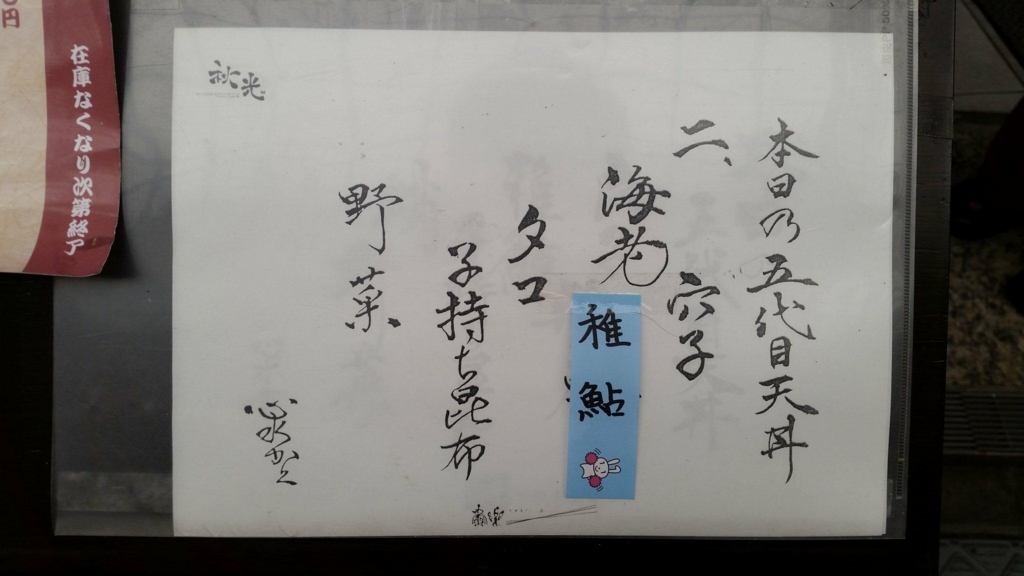 本日乃五代目天丼
二、穴子
海老
稚鮎
タコ
子持ち昆布
野菜
秋光
円
在庫なくなり次第終了